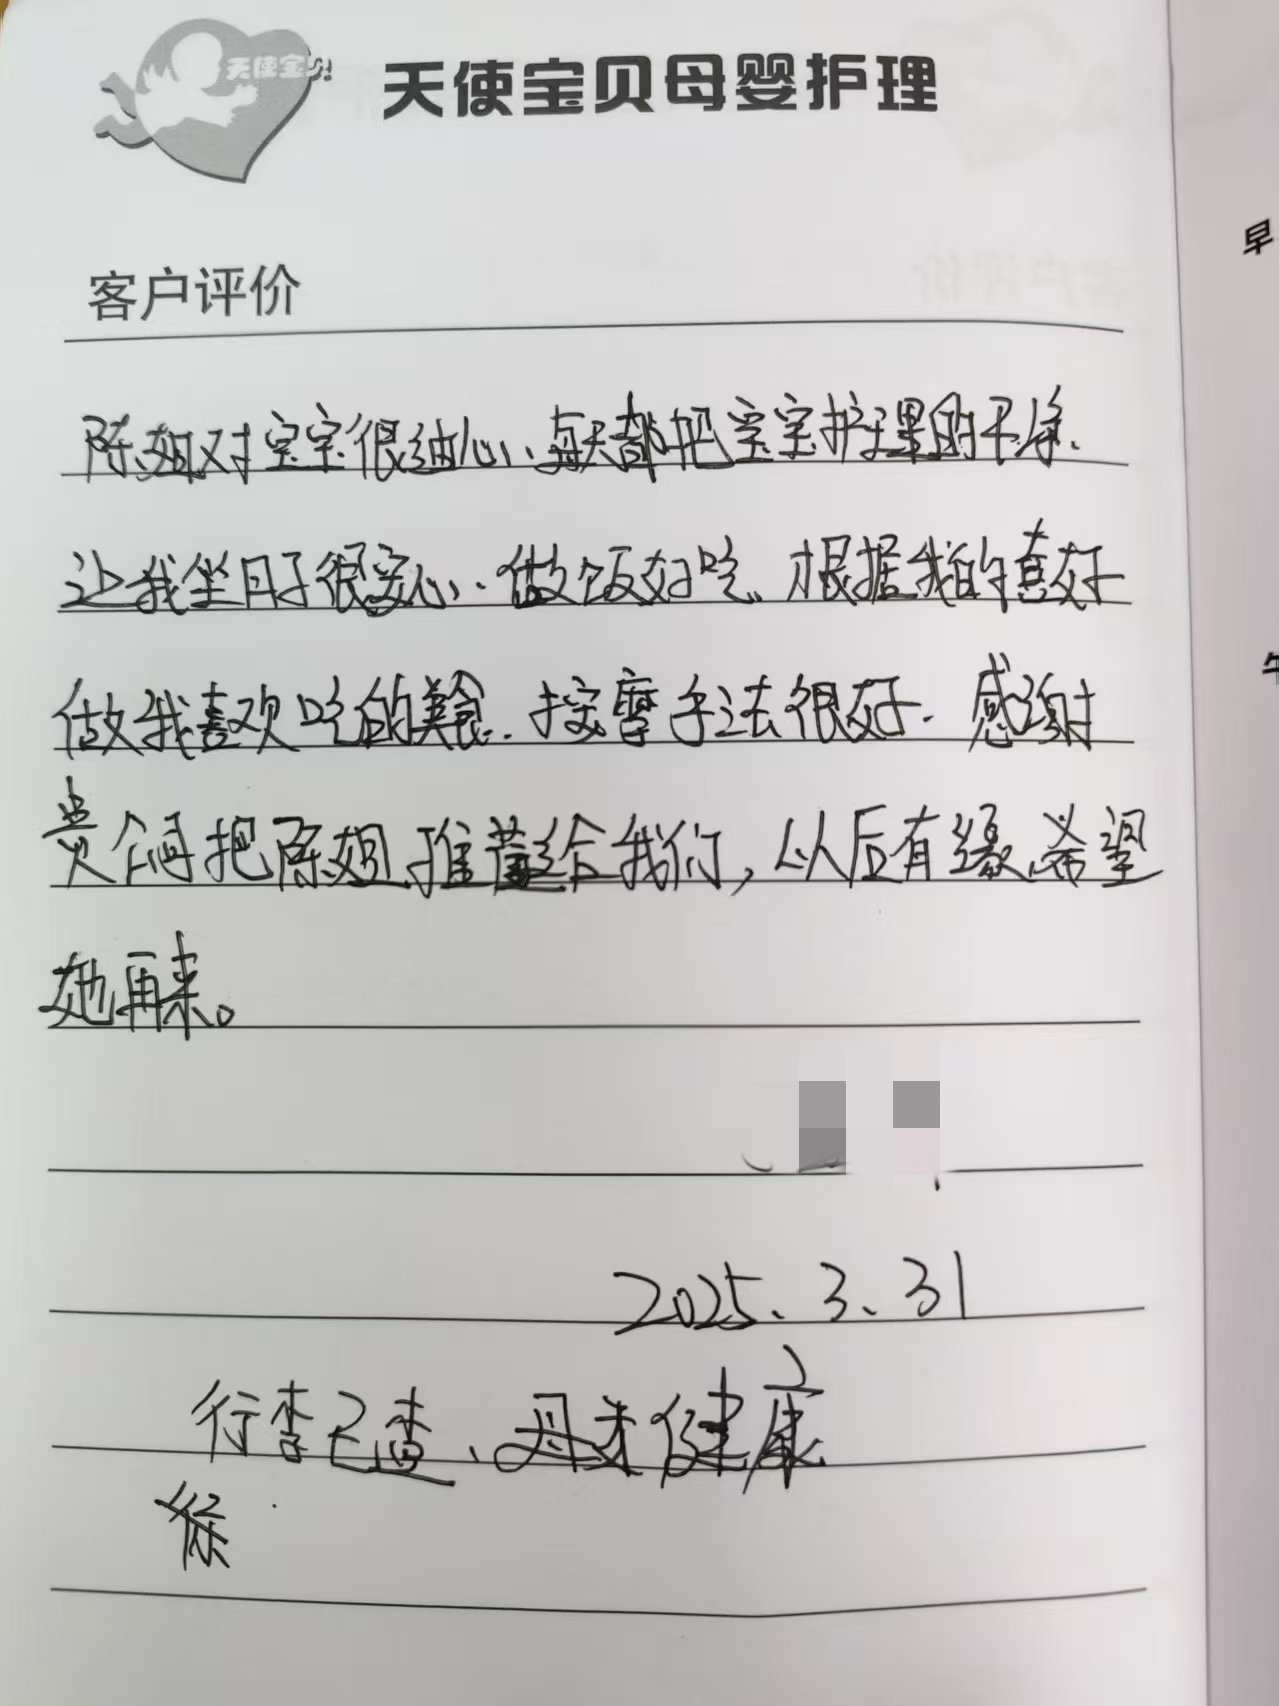 天使宝贝
天使宝贝母婴护理
早
客户评价
陈姐对宝宝很细心、每天都把宝宝护理的干净.
让我坐月子很安心.做饭好吃、根据我的喜好
午
做我喜欢吃的美食.按摩手法很好.感谢
贵公司把陈姐推荐给我们,以后有缘希望
她再来。
2025、3、31
行李已查、母未健康